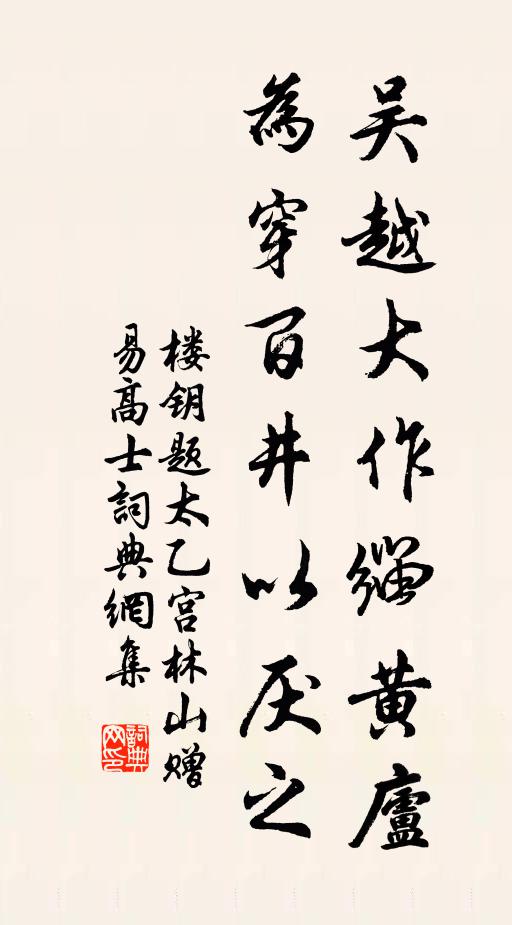 吴越大作缁黄廬
為穿百井以厌之
楼钥题太乙宫林山赠
易高士詞典網集
詞典
网印